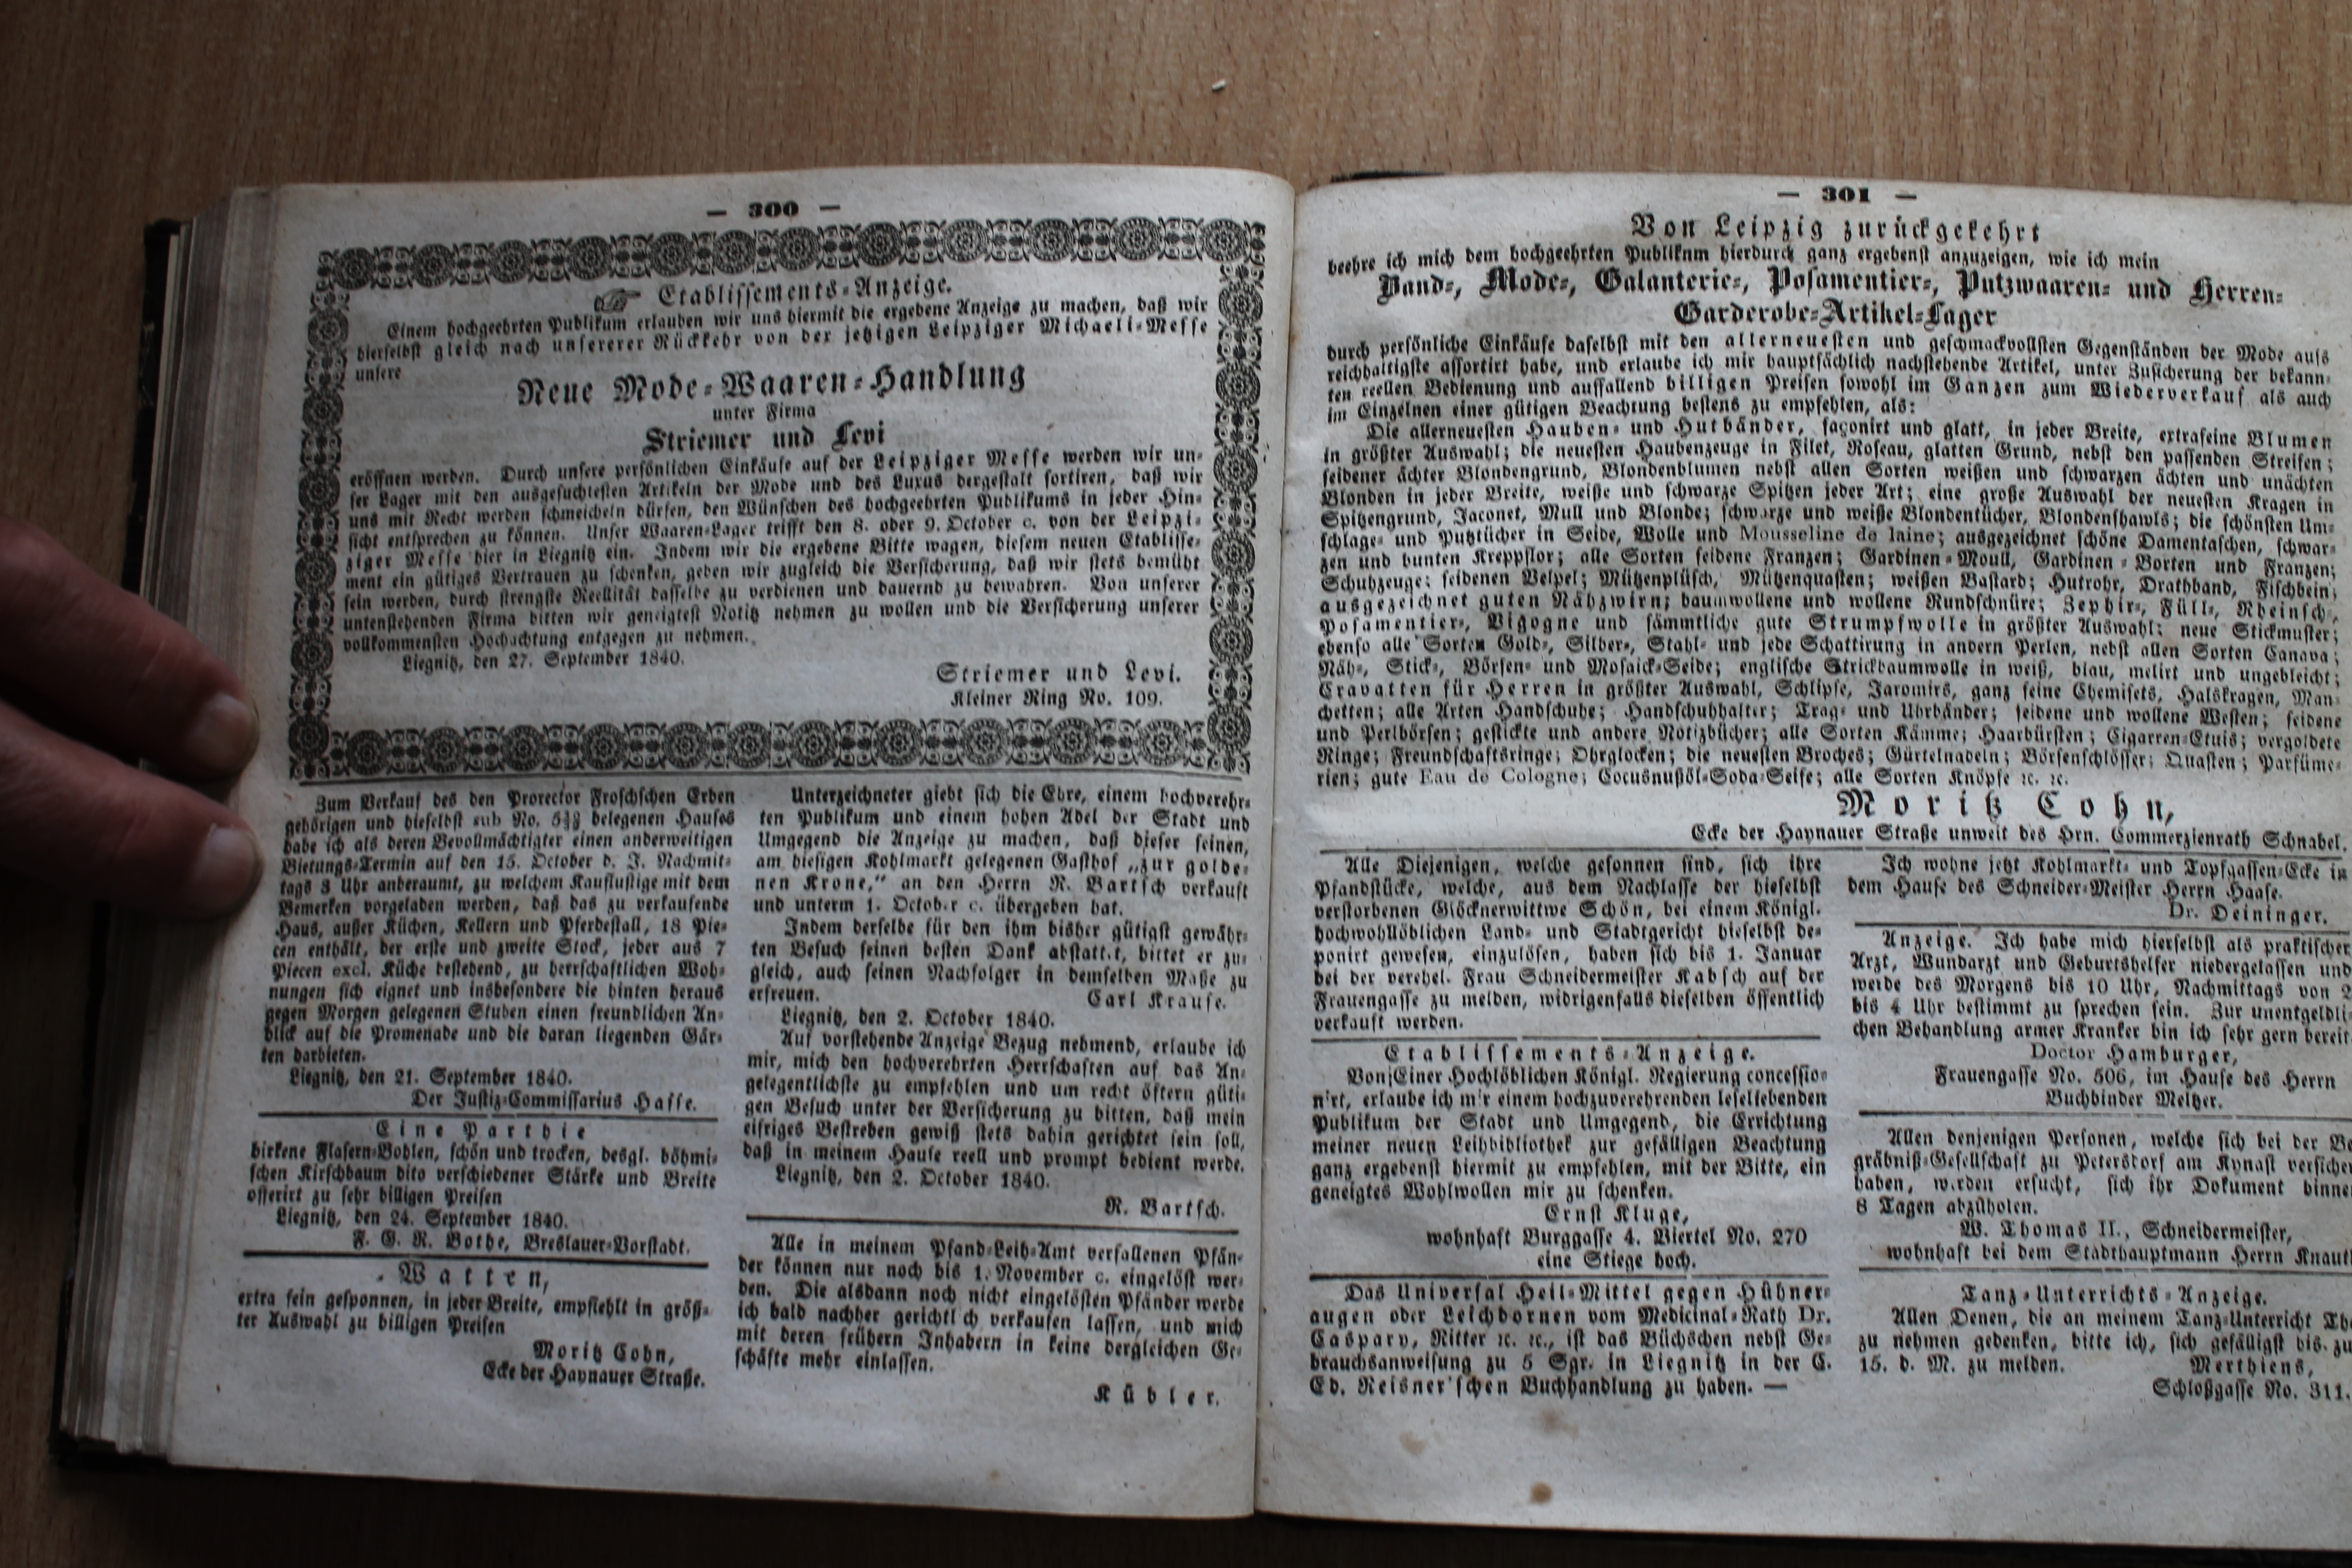 — 300 —
Etablissements-Anzeige.
Einem hochgeehrten Publikum erlauben wir uns hiermit die ergebene Anzeige zu machen, daß wir
hierselbst gleich nach unsererer Rückkehr von der jetzigen Leipziger Michaeli-Messe
unsere
Neue Mode-Waaren-Handlung
unter Firma
Striemer und Levi
eröffnen werden. Durch unsere persönlichen Einkäufe auf der Leipziger Messe werden wir un-
ser Lager mit den ausgesuchtesten Artikeln der Mode und des Luxus dergestalt sortiren, daß wir
uns mit Recht werden schmeicheln dürfen, den Wünschen des hochgeehrten Publikums in jeder Hin-
sicht entsprechen zu können. Unser Waaren-Lager trifft den 8. oder 9. October c. von der Leipzi-
ziger Messe hier in Liegnitz ein. Indem wir die ergebene Bitte wagen, diesem neuen Etablisse-
ment ein gütiges Vertrauen zu schenken, geben wir zugleich die Versicherung, daß wir stets bemüht
sein werden, durch strengste Reellität dasselbe zu verdienen und dauernd zu bewahren. Von unserer
untenstehenden Firma bitten wir geneigtest Notitz nehmen zu wollen und die Versicherung unserer
vollkommensten Hochachtung entgegen zu nehmen.
Liegnitz, den 27. September 1840.
Striemer und Levi.
Kleiner Ring No. 109.
Zum Verkauf des den Prorector Froschschen Erben
gehörigen und hieselbst sub No. belegenen Hauses
habe ich als deren Bevollmächtigter einen anderweitigen
Bietungs-Termin auf den 15. October d. J. Nachmit-
tags 3 Uhr anberaumt, zu welchem Kauflustige mit dem
Bemerken vorgeladen werden, daß das zu verkaufende
Haus, außer Küchen, Kellern und Pferdestall, 18 Pie-
cen enthält, der erste und zweite Stock, jeder aus 7
Piecen excl. Küche bestehend, zu herrschaftlichen Woh-
nungen sich eignet und insbesondere die hinten heraus
gegen Morgen gelegenen Stuben einen freundlichen An-
blick auf die Promenade und die daran liegenden Gär-
ten darbieten.
Liegnitz, den 21. September 1840.
Der Justiz-Commissarius Hasse.
Eine Parthie
birkene Flasern-Bohlen, schön und trocken, desgl. böhmi-
schen Kirschbaum dito verschiedener Stärke und Breite
offerirt zu sehr billigen Preisen
Liegnitz, den 24. September 1840.
F. G. R. Bothe, Breslauer-Vorstadt.
Watten,
extra fein gesponnen, in jeder Breite, empfiehlt in größ-
ter Auswahl zu billigen Preisen
Moritz Cohn,
Ecke der Haynauer Straße.
Unterzeichneter giebt sich die Ehre, einem hochverehr-
ten Publikum und einem hohen Adel der Stadt und
Umgegend die Anzeige zu machen, daß dieser seinen,
am hiesigen Kohlmarkt gelegenen Gasthof „zur golde-
nen Krone,“ an den Herrn R. Bartsch verkauft
und unterm 1. October c. übergeben hat.
Indem derselbe für den ihm bisher gütigst gewähr-
ten Besuch seinen besten Dank abstattet, bittet er zu-
gleich, auch seinen Nachfolger in demselben Maße zu
erfreuen. Carl Krause.
Liegnitz, den 2. October 1840.
Auf vorstehende Anzeige Bezug nehmend, erlaube ich
mir, mich den hochverehrten Herrschaften auf das An-
gelegentlichste zu empfehlen und um recht öftern güti-
gen Besuch unter der Versicherung zu bitten, daß mein
eifriges Bestreben gewiß stets dahin gerichtet sein soll,
daß in meinem Hause reell und prompt bedient werde.
Liegnitz, den 2. October 1840.
R. Bartsch.
Alle in meinem Pfand-Leih-Amt verfallenen Pfän-
der können nur noch bis 1. November c. eingelöst wer-
den. Die alsdann noch nicht eingelösten Pfänder werde
ich bald nachher gerichtlich verkaufen lassen, und mich
mit deren frühern Inhabern in keine dergleichen Ge-
schäfte mehr einlassen.
Kübler.
— 301 —
Von Leipzig zurückgekehrt
beehre ich mich dem hochgeehrten Publiknm hierdurch ganz ergebenst anzuzeigen, wie ich mein
Band-, Mode-, Galanterie-, Posamentier-, Putzwaaren- und Herren-
Garderobe-Artikel-Lager
durch persönliche Einkäufe daselbst mit den allerneuesten und geschmackvollsten Gegenständen der Mode aufs
reichhaltigste assortirt habe, und erlaube ich mir hauptsächlich nachstehende Artikel, unter Zusicherung der bekann-
ten reellen Bedienung und auffallend billigen Preisen sowohl im Ganzen zum Wiederverkauf als auch
im Einzelnen einer gütigen Beachtung bestens zu empfehlen, als:
Die allerneuesten Hauben- und Hutbänder, façonirt und glatt, in jeder Breite, extrafeine Blumen
in größter Auswahl; die neuesten Haubenzeuge in Filet, Roseau, glatten Grund, nebst den passenden Streifen;
seidener ächter Blondengrund, Blondenblumen nebst allen Sorten weißen und schwarzen ächten und unächten
Blonden in jeder Breite, weiße und schwarze Spitzen jeder Art; eine große Auswahl der neuesten Kragen in
Spitzengrund, Jaconet, Mull und Blonde; schwarze und weiße Blondentücher, Blondenshawls; die schönsten Um-
schlage- und Putztücher in Seide, Wolle und Mousseline de laine; ausgezeichnet schöne Damentaschen, schwar-
zen und bunten Kreppflor; alle Sorten seidene Franzen; Gardinen-Moull, Gardinen-Borten und Franzen;
Schuhzeuge; seidenen Velpel; Mützenplüsch, Mützenquasten; weißen Bastard; Hutrohr, Drathband, Fischbein;
ausgezeichnet guten Nähzwirn; baumwollene und wollene Rundschnüre; Zephir-, Füll-, Rheinsch-,
Posamentier-, Vigogne und sämmtliche gute Strumpfwolle in größter Auswahl; neue Stickmuster;
ebenso alle Sorten Gold-, Silber-, Stahl- und jede Schattirung in andern Perlen, nebst allen Sorten Canava;
Näh-, Stick-, Börsen- und Mosaick-Seide; englische Strickbaumwolle in weiß, blau, melirt und ungebleicht;
Cravatten für Herren in größter Auswahl, Schlipse, Jaromirs, ganz feine Chemisets, Halskragen, Man-
chetten; alle Arten Handschuhe; Handschuhhalter; Trag- und Uhrbänder; seidene und wollene Westen; seidene
und Perlbörsen; gestickte und andere Notizbücher; alle Sorten Kämme; Haarbürsten; Cigarren-Etuis; vergoldete
Ringe; Freundschaftsringe; Ohrglocken; die neuesten Broches; Gürtelnadeln; Börsenschlösser; Quasten; Parfüme-
rien; gute Eau de Cologne; Cocusnußöl-Soda-Seife; alle Sorten Knöpfe ꝛc. ꝛc.
Moritz Cohn,
Ecke der Haynauer Straße unweit des Hrn. Commerzienrath Schnabel.
Alle Diejenigen, welche gesonnen sind, sich ihre
Pfandstücke, welche, aus dem Nachlasse der hieselbst
verstorbenen Glöcknerwittwe Schön, bei einem Königl.
hochwohllöblichen Land- und Stadtgericht hieselbst de-
ponirt gewesen, einzulösen, haben sich bis 1. Januar
bei der verehel. Frau Schneidermeister Kabsch auf der
Frauengasse zu melden, widrigenfalls dieselben öffentlich
verkauft werden.
Etablissements-Anzeige.
Von Einer Hochlöblichen Königl. Regierung concessio-
nirt, erlaube ich mir einem hochzuverehrenden leseliebenden
Publikum der Stadt und Umgegend, die Errichtung
meiner neuen Leihbibliothek zur gefälligen Beachtung
ganz ergebenst hiermit zu empfehlen, mit der Bitte, ein
geneigtes Wohlwollen mir zu schenken.
Ernst Kluge,
wohnhaft Burggasse 4. Viertel No. 270
eine Stiege hoch.
Das Universal Heil-Mittel gegen Hühner-
augen oder Leichdornen vom Medicinal-Rath Dr.
Caspary, Ritter ꝛc. ꝛc., ist das Büchschen nebst Ge-
brauchsanweisung zu 5 Sgr. in Liegnitz in der C.
Ed. Reisner'schen Buchhandlung zu haben. —
Ich wohne jetzt Kohlmarkt- und Topfgassen-Ecke in
dem Hause des Schneider-Meister Herrn Haase.
Dr. Deininger.
Anzeige. Ich habe mich hierselbst als praktischer
Arzt, Wundarzt und Geburtshelfer niedergelassen und
werde des Morgens bis 10 Uhr, Nachmittags von 2
bis 4 Uhr bestimmt zu sprechen sein. Zur unentgeldli-
chen Behandlung armer Kranker bin ich sehr gern bereit.
Doctor Hamburger,
Frauengasse No. 506, im Hause des Herrn
Buchbinder Meltzer.
Allen denjenigen Personen, welche sich bei der Be
gräbniß-Gesellschaft zu Petersdorf am Kynast versicher
haben, werden ersucht, sich ihr Dokument binnen
8 Tagen abzuholen.
W. Thomas II., Schneidermeister,
wohnhaft bei dem Stadthauptmann Herrn Knaut
Tanz-Unterrichts-Anzeige.
Allen Denen, die an meinem Tanz-Unterricht The
zu nehmen gedenken, bitte ich, sich gefälligst bis zu
15. d. M. zu melden. Merthiens,
Schloßgasse No. 311.